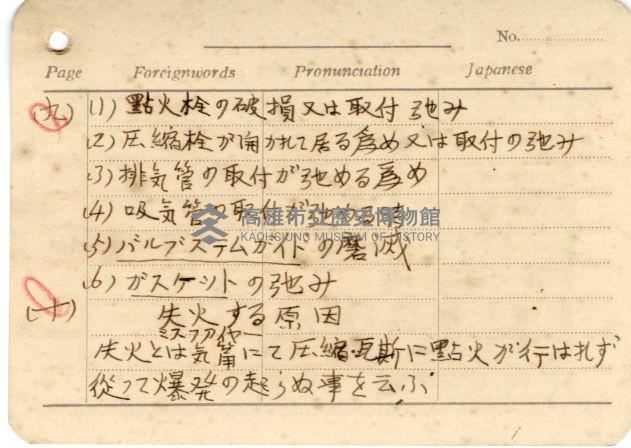 No.
Page Foreignwords Pronunciation Japanese
(九) (1) 點火栓の破損又は取付弛み
(2) 圧縮栓が開かれて居る為め又は取付の弛み
(3) 排気管の取付が弛める為め
(4) 吸気管の取付が弛める
高雄市立歷史博物館
KAOHSIUNG MUSEUM OF HISTORY
(5) バルブステムガイドの磨滅
(6) ガスケットの弛み
(十) 失火する原因
ミスファイヤー
失火とは気筩にて圧縮瓦斯に點火が行はれず
從つて爆発の起らぬ事を云ふ